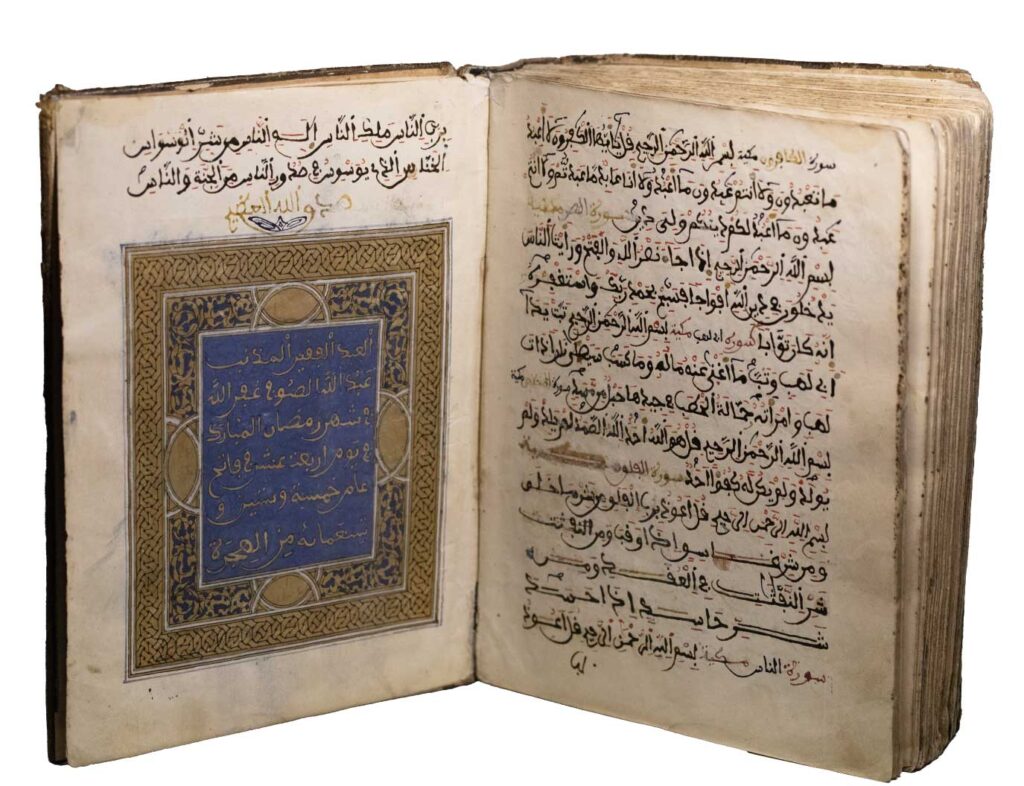 سورة الكافرون مكية بسم الله الرحمن الرحيم قل يأيها الكفرون لا أعبد
ما تعبدون ولا أنتم عبدون ما أعبد ولا أنا عابد ما عبدتم ولا أنتم
عبدون ما أعبد لكم دينكم ولي دين سورة النصر مدنية
بسم الله الرحمن الرحيم إذا جاء نصر الله والفتح ورأيت الناس
يدخلون في دين الله أفواجا فسبح بحمد ربك واستغفره
إنه كان توابا سورة أبي لهب مكية بسم الله الرحمن الرحيم تبت يدا
أبي لهب وتب ما أغنى عنه ماله وما كسب سيصلى نارا ذات
لهب وامرأته حمالة الحطب في جيدها حبل من مسد سورة مكية
بسم الله الرحمن الرحيم قل هو الله أحد الله الصمد لم يلد ولم
يولد ولم يكن له كفوا أحد سورة الفلق
بسم الله الرحمن الرحيم قل أعوذ برب الفلق من شر ما خلق
ومن شر غاسق إذا وقب ومن النفثت
شر النفثت في العقد ومن
شر حاسد إذا حسد
سورة الناس مكية بسم الله الرحمن الرحيم قل أعوذ
برب الناس ملك الناس إله الناس من شر الوسواس
الخناس الذي يوسوس في صدور الناس من الجنة والناس
صدق الله العظيم
العبد الفقير المذنب
عبد الله الصوفي غفر الله
في شهر رمضان المبارك
في يوم اربعة عشر في
عام خمسة وستين و
تسعمائة من الهجرة